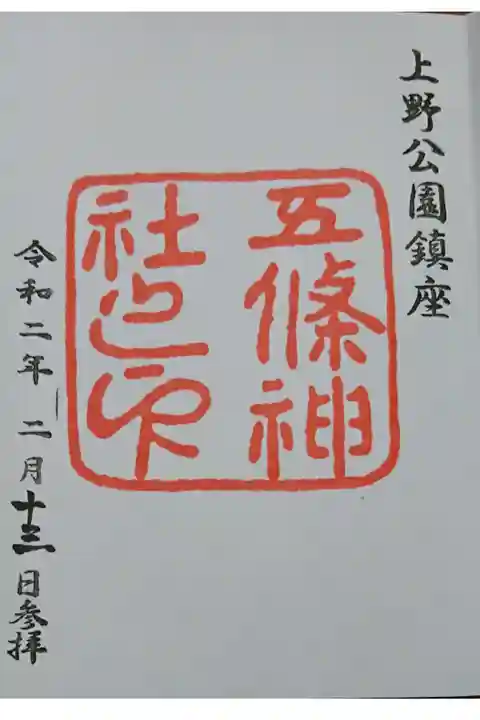 上野公園鎮座
五條神
社之印
令和二年 二月十三日参拝